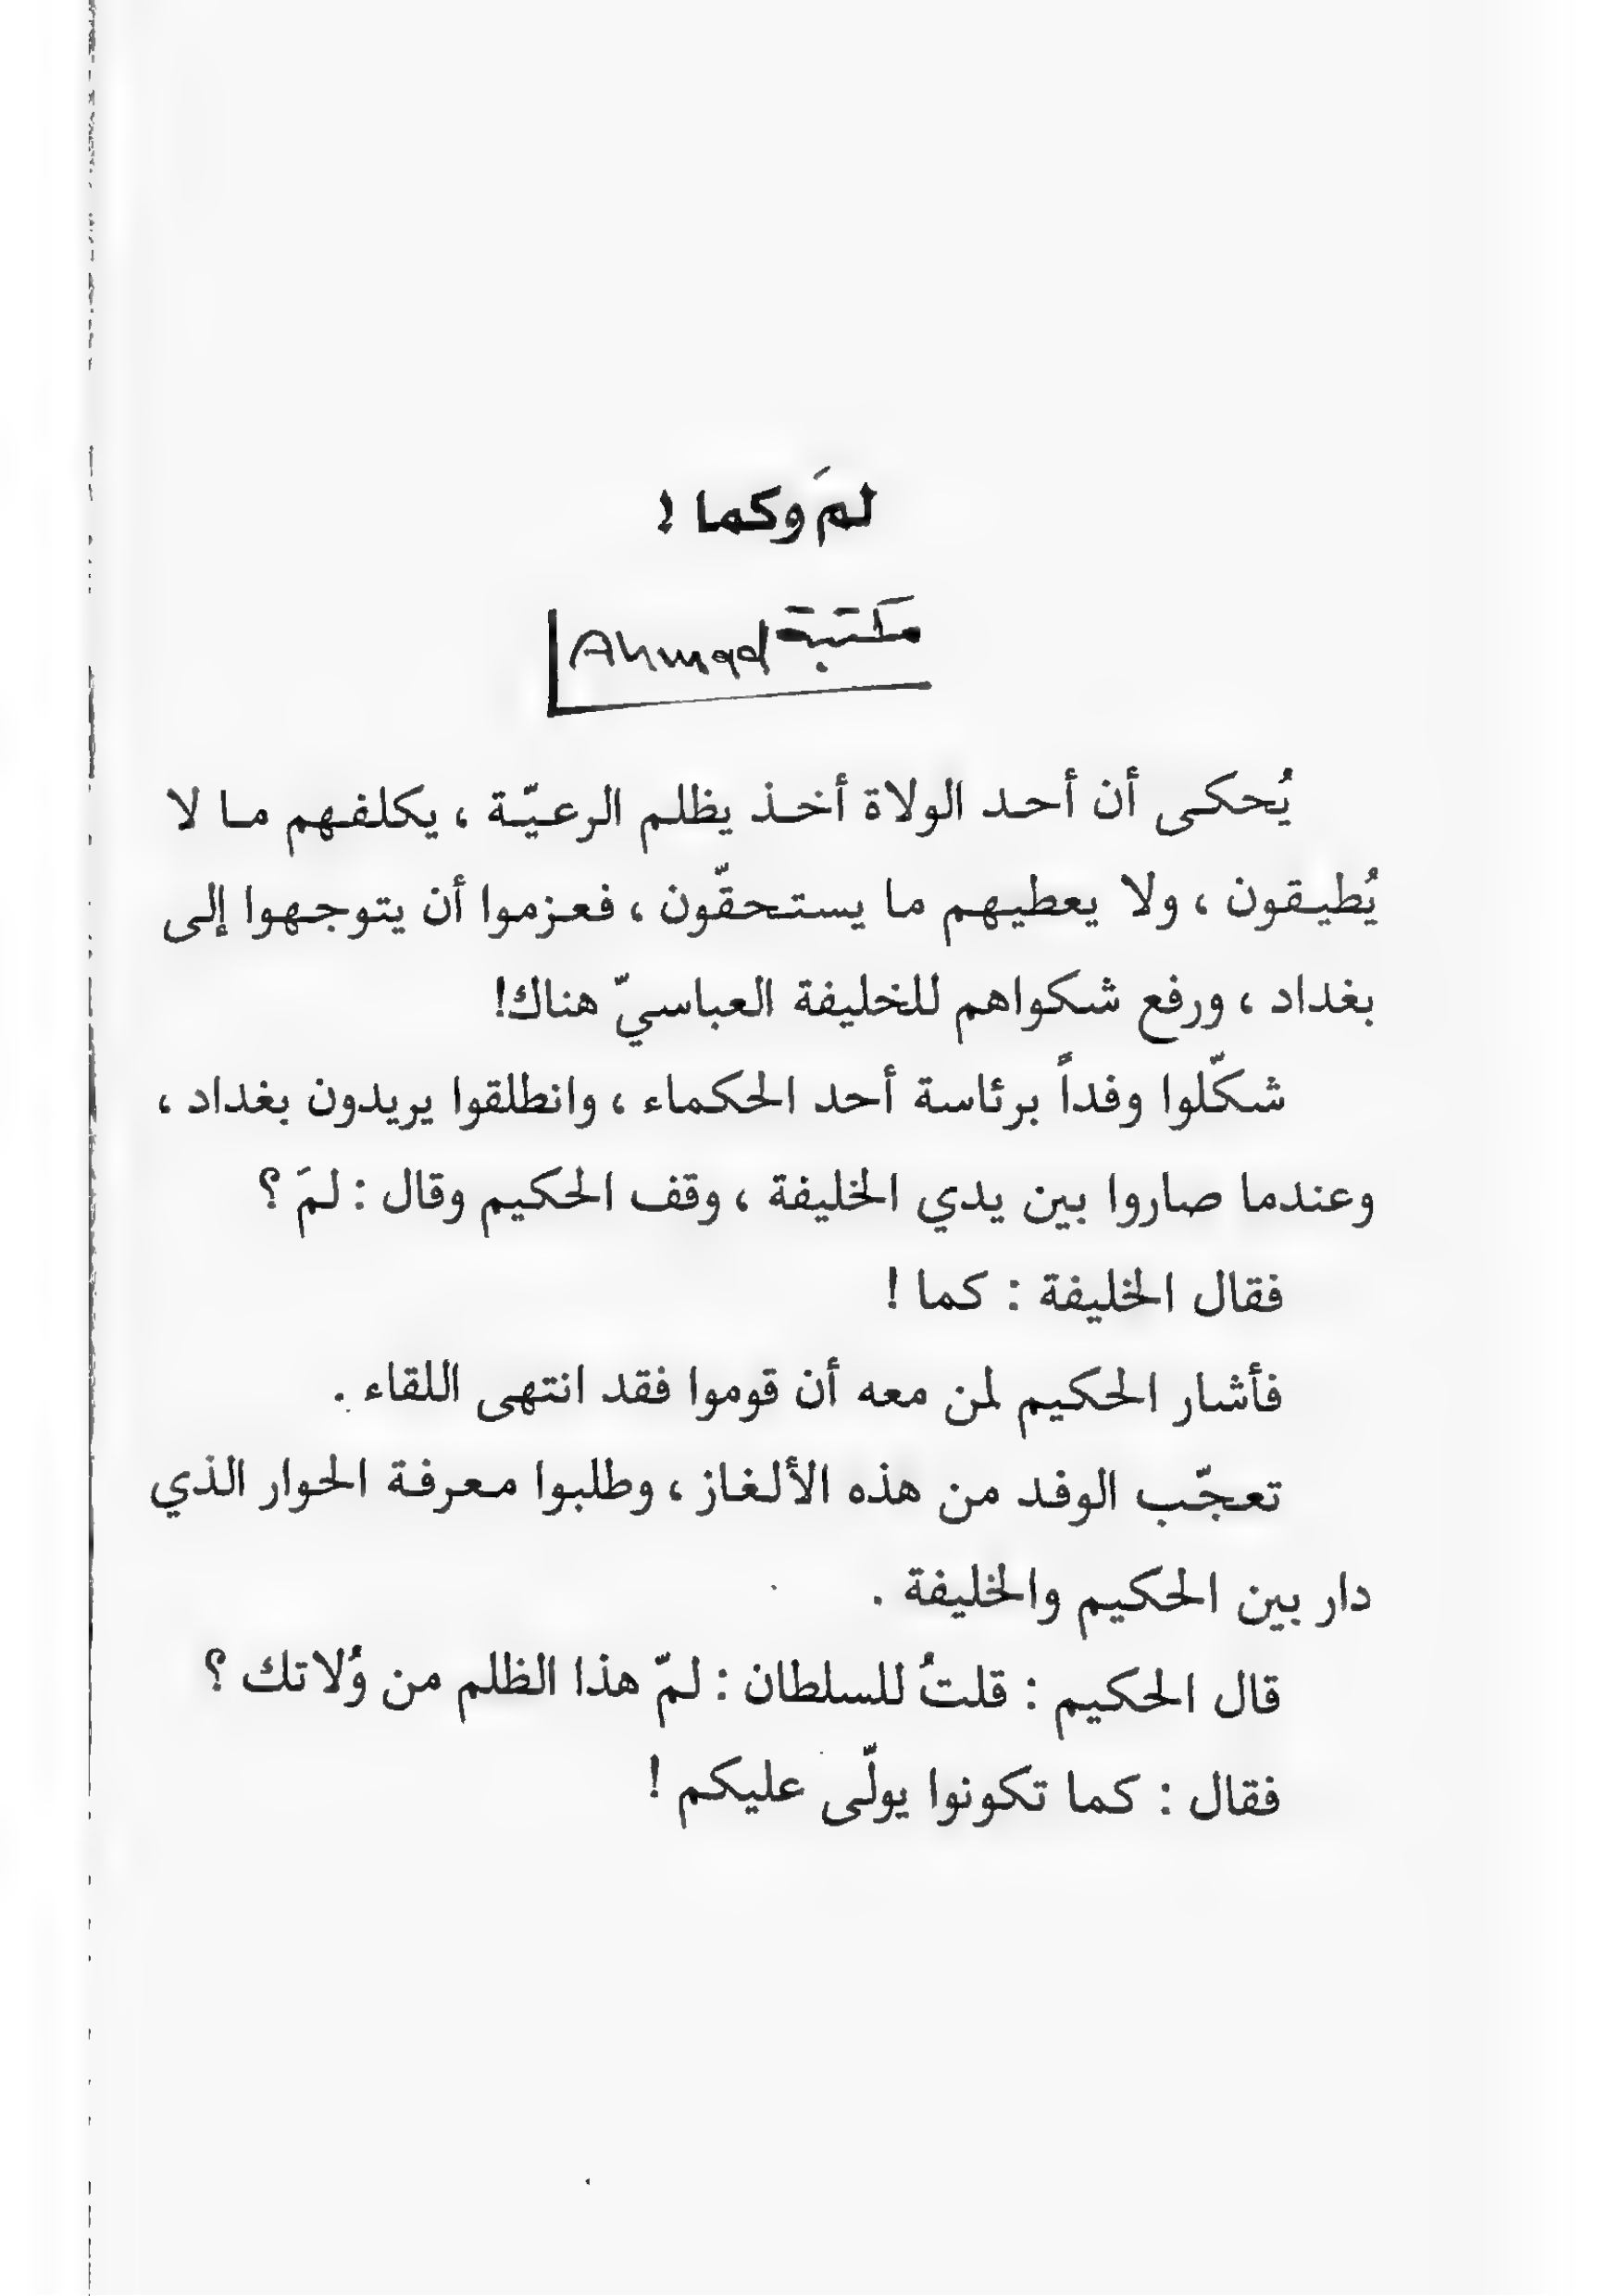 لمَ وكما !
مكتبة Ahmad
يُحكى أن أحد الولاة أخذ يظلم الرعيّة ، يكلفهم ما لا
يُطيقون ، ولا يعطيهم ما يستحقّون ، فعزموا أن يتوجهوا إلى
بغداد ، ورفع شكواهم للخليفة العباسيّ هناك!
شكّلوا وفداً برئاسة أحد الحكماء ، وانطلقوا يريدون بغداد ،
وعندما صاروا بين يدي الخليفة ، وقف الحكيم وقال : لمَ ؟
فقال الخليفة : كما !
فأشار الحكيم لمن معه أن قوموا فقد انتهى اللقاء .
تعجّب الوفد من هذه الألغاز ، وطلبوا معرفة الحوار الذي
دار بين الحكيم والخليفة .
قال الحكيم : قلتُ للسلطان : لمّ هذا الظلم من وُلاتك ؟
فقال : كما تكونوا يولّى عليكم !